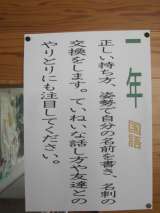 一年
国語
正しい持ち方、姿勢で自分の名前を書き、名刺の
交換をします。ていねいな話し方や友達との
やりとりにも注目してください。